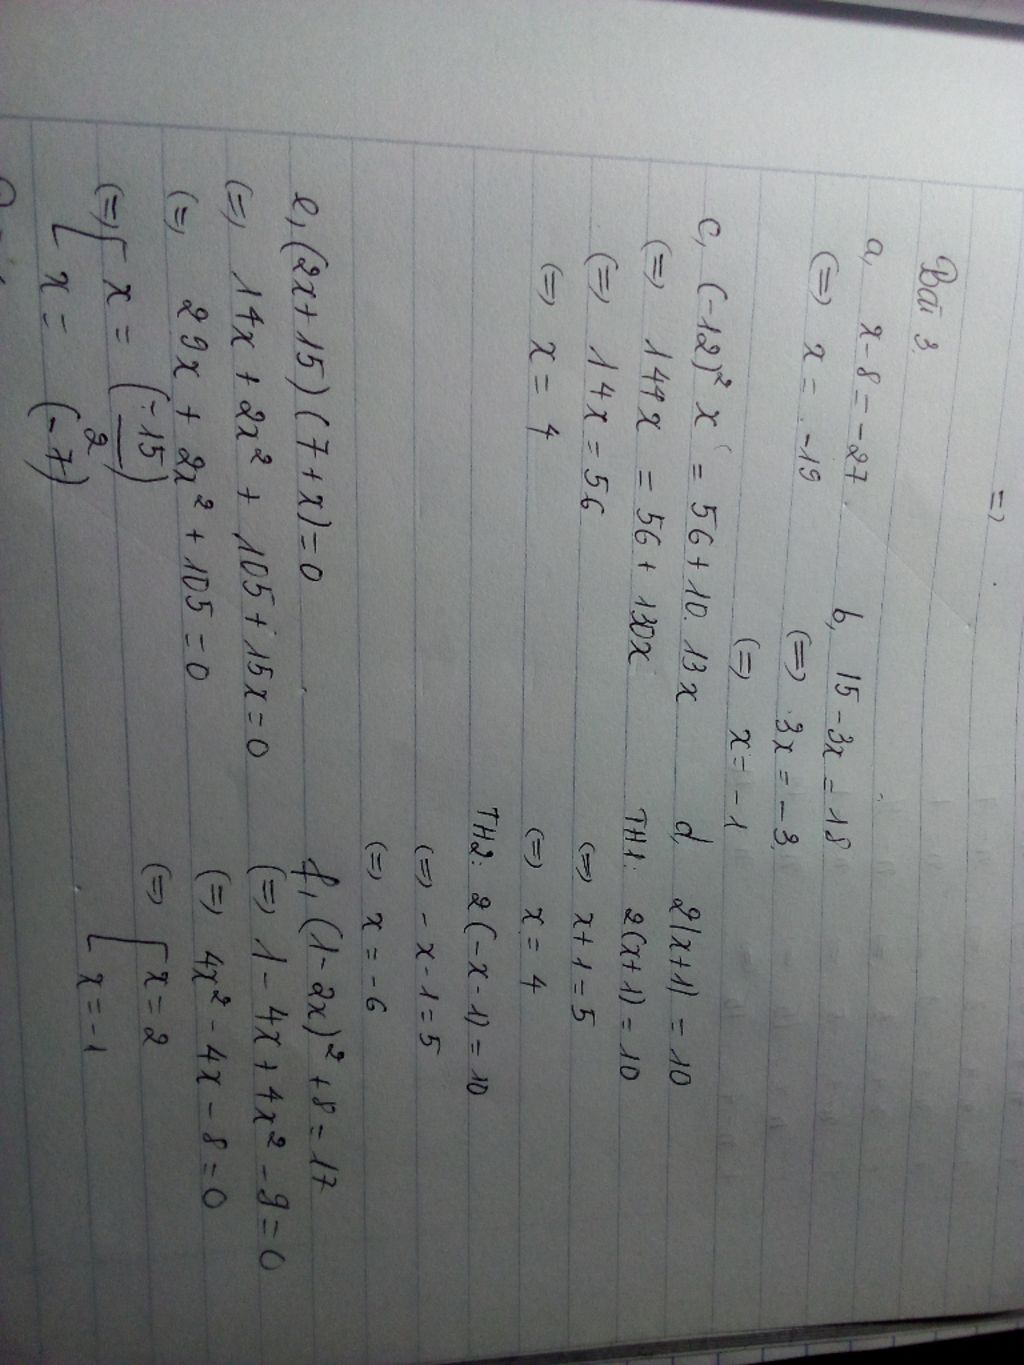 =>
Bài 3.
a, x-8=-27.
(=) x = -19
b, 15-3x=18
(=) 3x=-3
(=) x=-1
c, (-12)² x = 56+10.13x
(=) 144x = 56+130x
(=) 14x=56
(=) x= 4
d, 2|x+1| = 10
TH1: 2(x+1)=10
(=) x+1=5
(=) x=4
TH2: 2(-x-1)=10
(=) -x-1=5
(=) x=-6
e, (2x+15)(7+x)=0
(=) 14x+2x²+105+15x=0
(=) 29x+2x²+105=0
(=) [ x = (-15/2)
x = (-7)
f, (1-2x)²+8=17
(=) 1-4x+4x²-9=0
(=) 4x²-4x-8=0
(=) [ x=2
x=-1